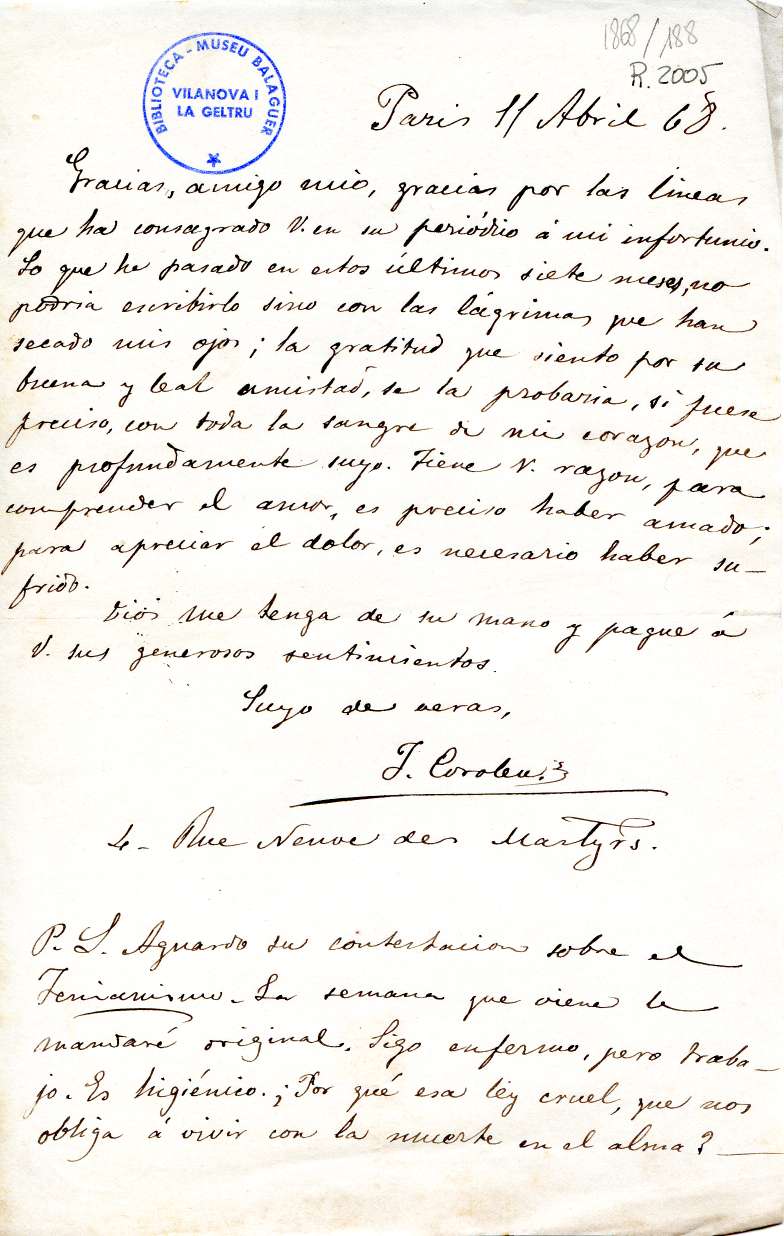 1868/188
R. 2005
BIBLIOTECA - MUSEU BALAGUER
VILANOVA I
LA GELTRU
Paris 11 Abril 68.
Gracias, amigo mio, gracias por las lineas
que ha consagrado V. en su periódico á mi infortunio.
Lo que he pasado en estos últimos siete meses, no
podria escribirlo sino con las lágrimas que han
secado mis ojos; la gratitud que siento por su
buena y leal amistad, se la probaria, si fuese
preciso, con toda la sangre de mi corazon, que
es profundamente suyo. Tiene V. razon, para
comprender el amor, es preciso haber amado;
para apreciar el dolor, es necesario haber su-
frido.
Dios me tenga de su mano y pague á
V. sus generosos sentimientos.
Suyo de veras,
J. Coroleu.
4 - Rue Neuve des Martyrs.
P. S. Aguardo su contestacion sobre el
Fenianismo. La semana que viene le
mandaré original. Sigo enfermo, pero traba-
jo. Es higiénico. ¿Por qué esa ley cruel, que nos
obliga á vivir con la muerte en el alma?